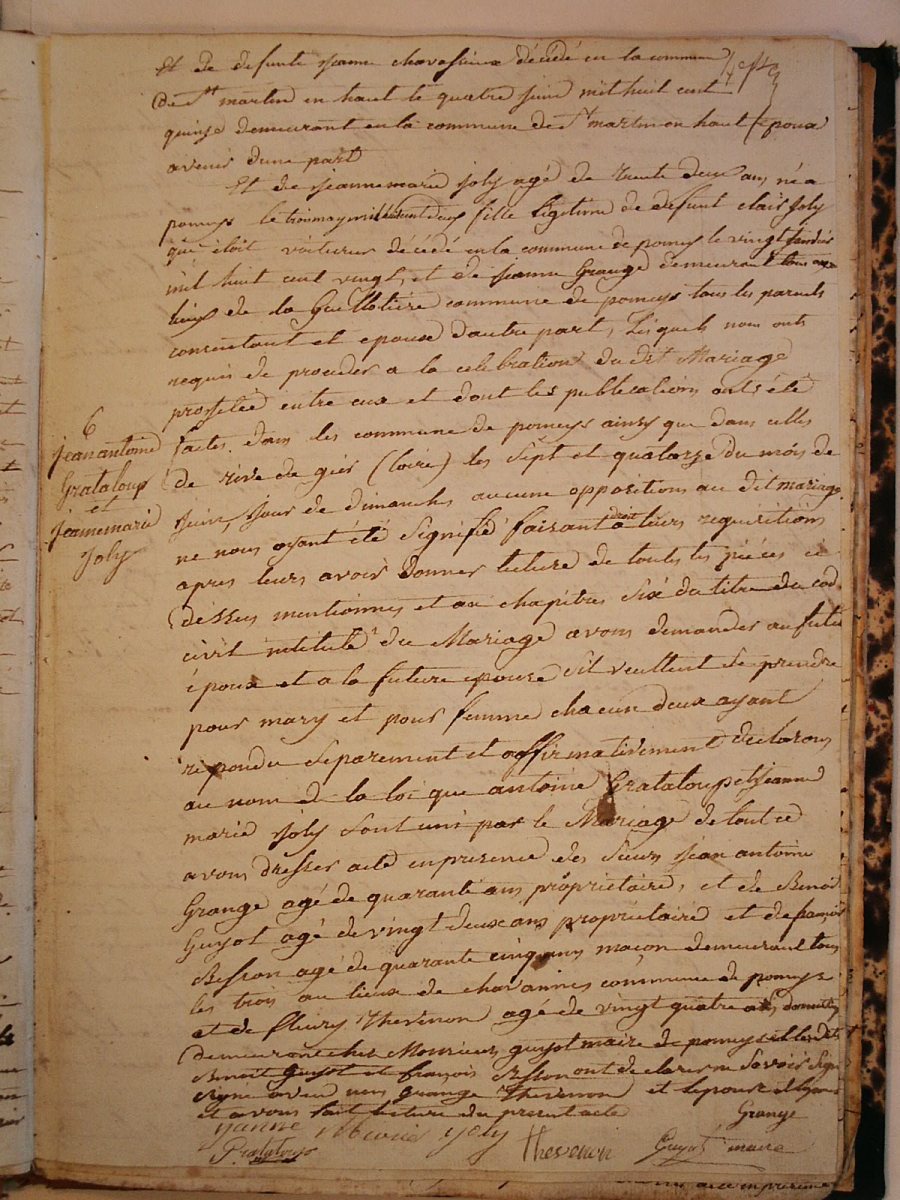 Et de defunte jeanne chavassieux décédé en la commune
De St martin en haut le quatre juin mil huit cent
quinze demeurant en la commune de St martin en haut epoux
avenir dune part
Et de jeannemarie joly agé de trente deux ans né a
pomeys le trois may mil fille ligitime de defunt clair joly
qui étoit voiturier décédé en la commune de pomeys le vingt
mil huit cent vingt, et de jeanne Grange demeurant tous aux
lieux de la Guillotière commune de pomeys tous les parents
consentant et epouse dautre part, Lesquels nous onts
requis de proceder a la celebration du dit Mariage
projetée entre eux et dont les publications onts été
faites dans les commune de pomeys ainsy que dans celles
de rive de gier (loire) les sept et quatorze du mois de
Juin, jour de dimanche aucune oppositions au dit mariage
ne nous ayant été signifié faisant droit a leurs requisitions
apres leurs avoir donner lecture de toutes les pièces ci
dessus mentionnes et au chapitre six du titre du code
civil intitulé du Mariage avons demander au futur
époux et a la future epouse sil veullent se prendre
pour mary et pour femme chacun deux ayant
repondu separement et affirmativement declarons
au nom de la loi que antoine Grataloup et jeanne
marie joly sont unis par le Mariage de tout ce
avons dresser acte en presence des sieurs jean antoine
Grange agé de quarante ans propriétaire, et de Benoit
Guyot agé de vingt deux ans propriétaire et de françois
Besson agé de quarante cinq ans maçon demeurant tous
les trois au lieux de chavannes commune de pomeys
et de fleury Thevenon agé de vingt quatre ans domestique
demeurant chez Monsieur guyot maire de pomeys et lesdits
Benoit guyot et françois Besson ont declarer ne savoir signer
signe avec nous grange Thevenon et lepouse
et avons fait lecture du present acte Grange
6
jean antoine
Grataloup
et
jeannemarie
Joly
janne Marie joly
Grataloup
thevenon
Guyot maire